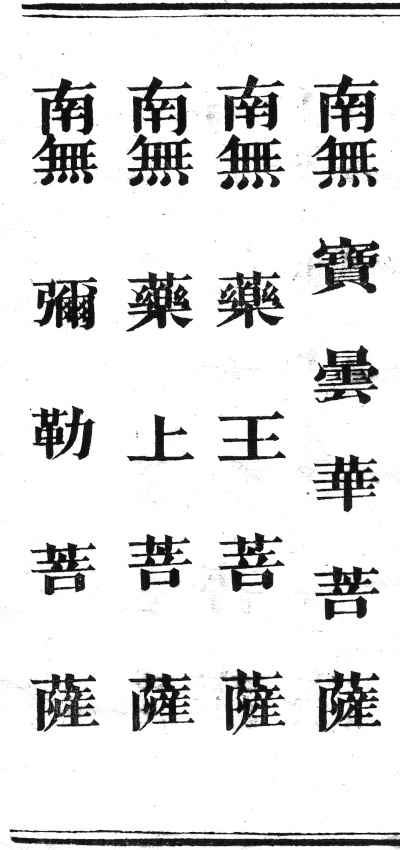 南無寶曇華菩薩
南無藥王菩薩
南無藥上菩薩
南無彌勒菩薩